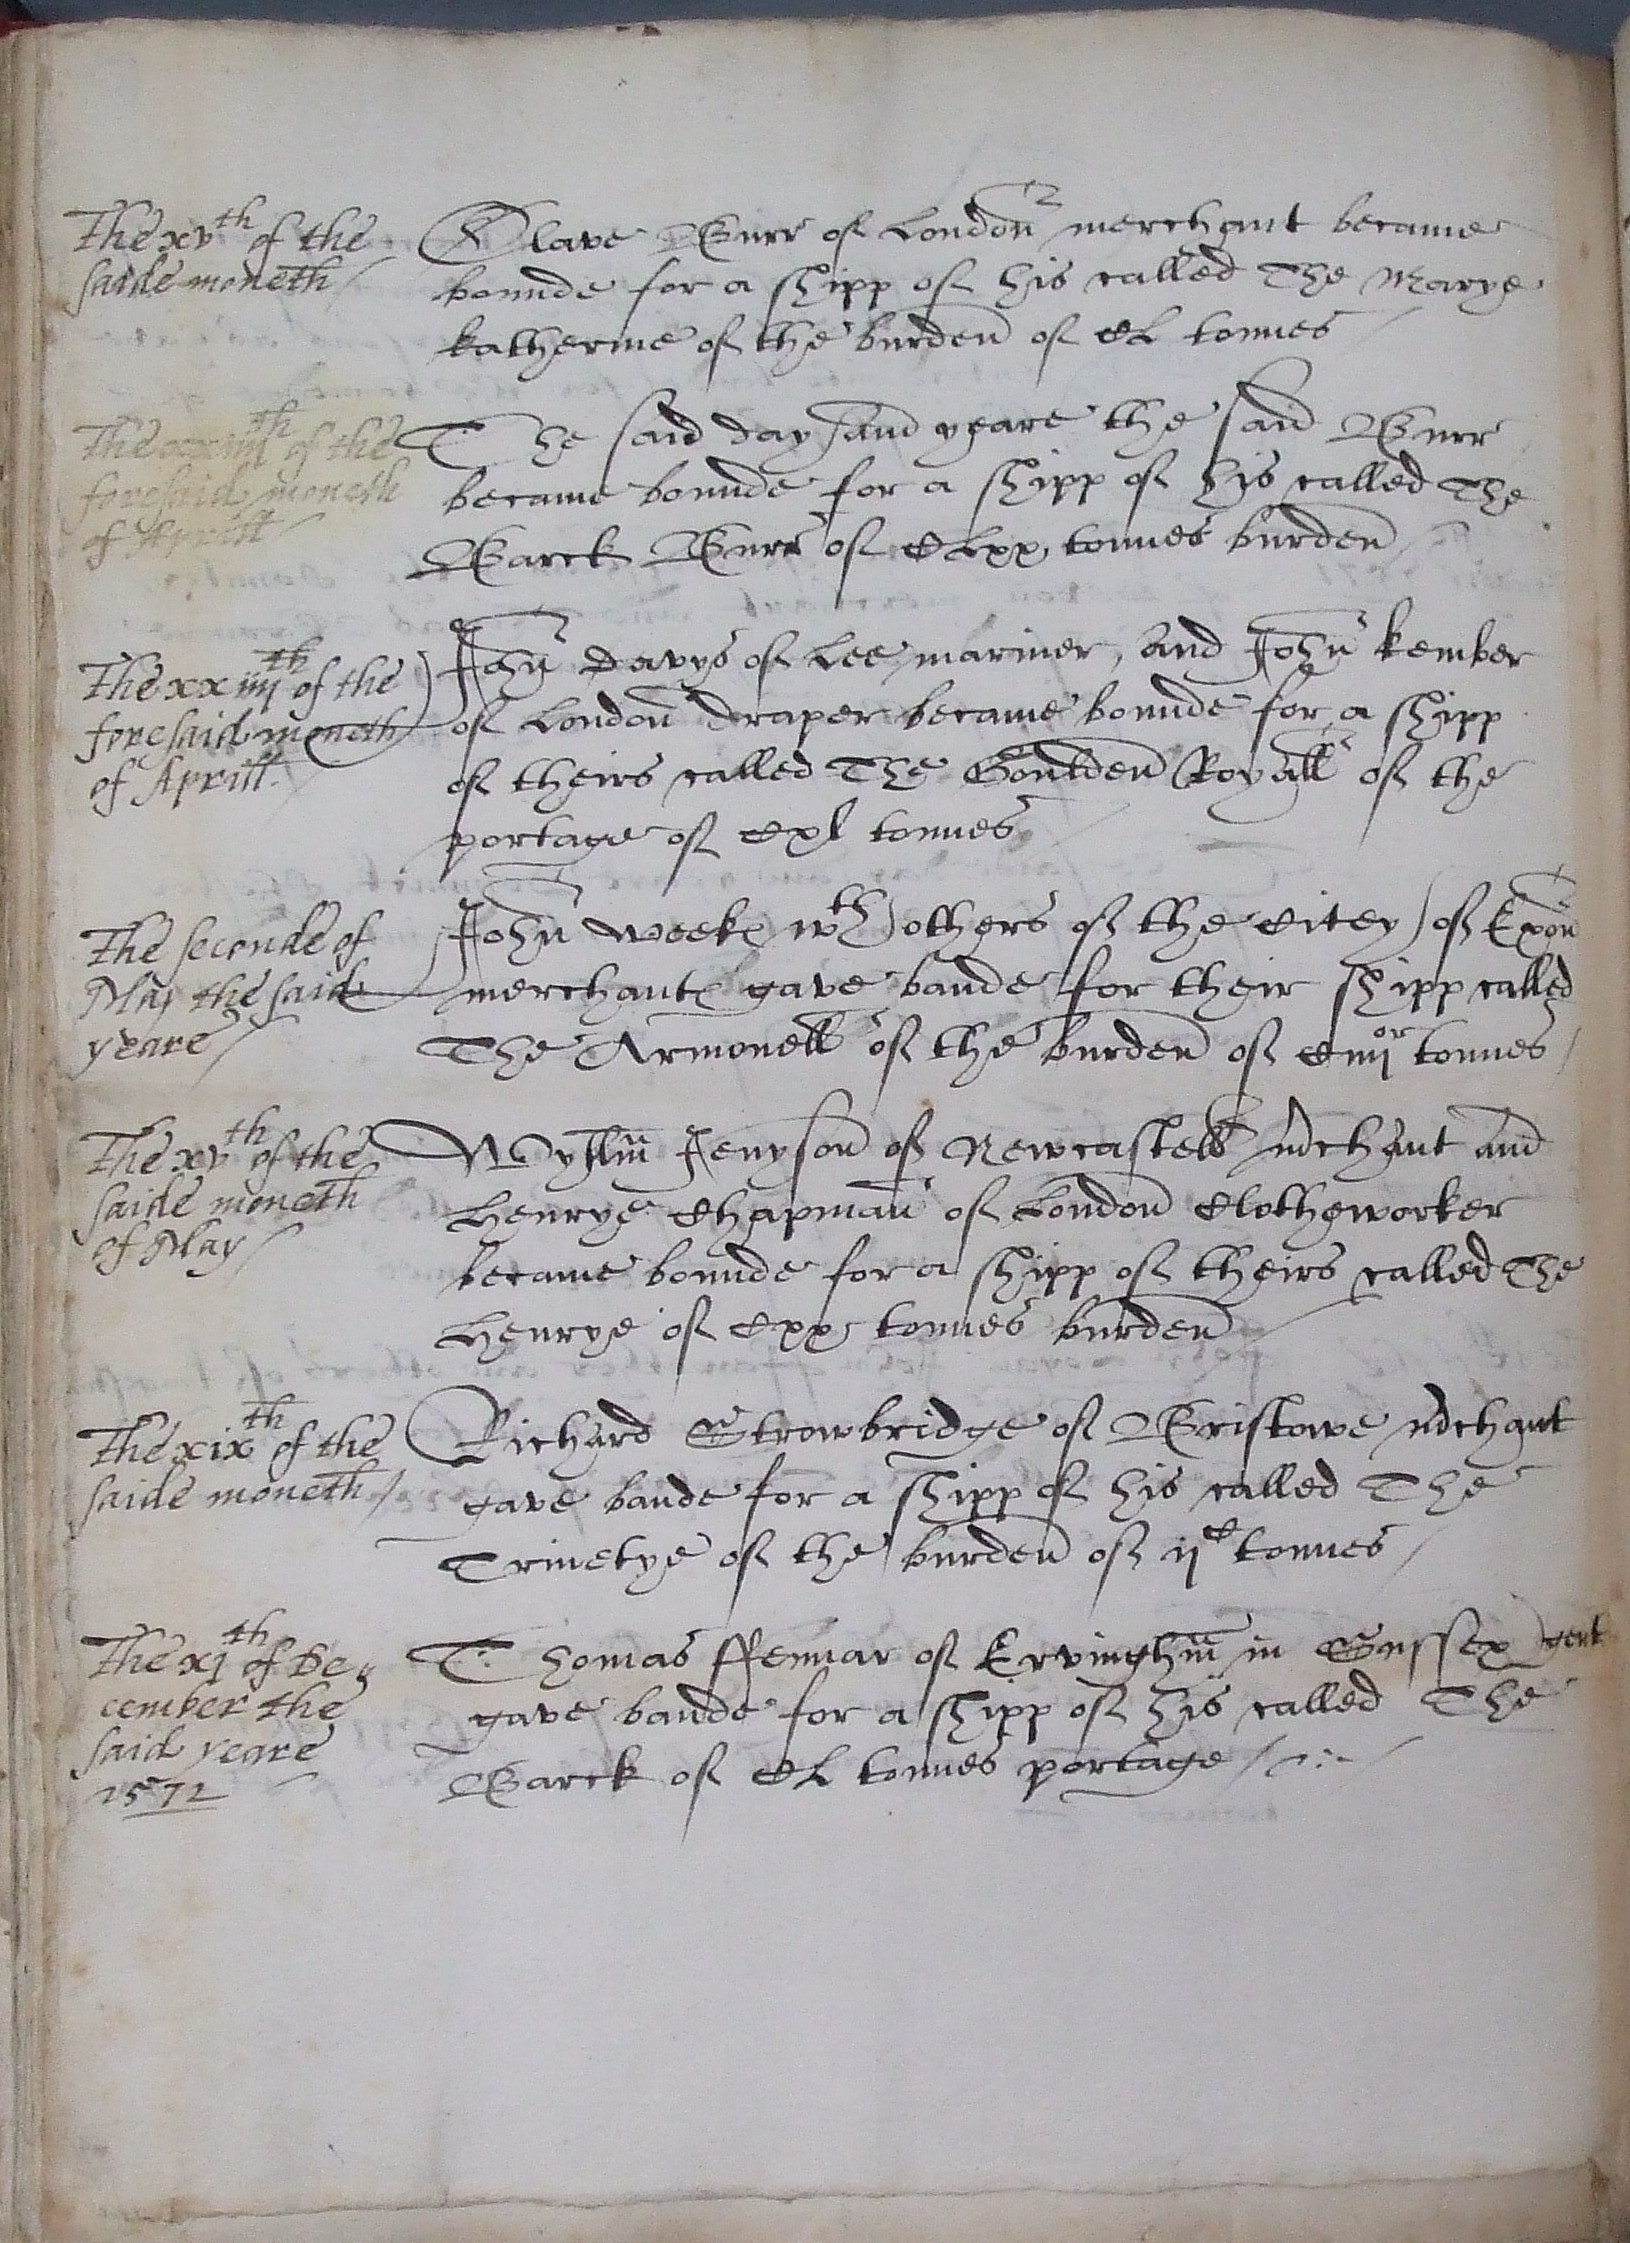 The xvth of the
saide moneth /
Olave Burr of London merchant became
bounde for a shipp of his called The Marye
katherine of the burden of CL tonnes /
The xxiiijth of the
foresaid moneth
of Aprill /
The said day and yeare the said Burr
became bounde for a shipp of his called The
Barck Burr of CLxx tonnes burden /
The xxiiijth of the
foresaid moneth
of Aprill /
John Davys of Lee mariner, and John kember
of London draper became bounde for a shipp
of theirs called The Goulden Royall of the
portage of Cxl tonnes /
The seconde of
May the said
yeare /
John Weekes wth others of the Citey of Exon
merchantes gave bande for their shipp called
The Armonell of the burden of Ciiijor tonnes /
The xvth of the
saide moneth
of May /
Wyllm Jenyson of Newcastell mchant and
Henrye Chapman of London Clotheworker
became bounde for a shipp of theirs called The
Henrye of Cxx tonnes burden /
The xixth of the
saide moneth /
Richard Strowbridge of Bristowe mchant
gave bande for a shipp of his called The
Trinetye of the burden of ijC tonnes /
The xjth of De
cember the
said yeare
1572
Thomas ffennar of Ervinghm in Sussex gent
gave bande for a shipp of his called The
Barck of CL tonnes portage /